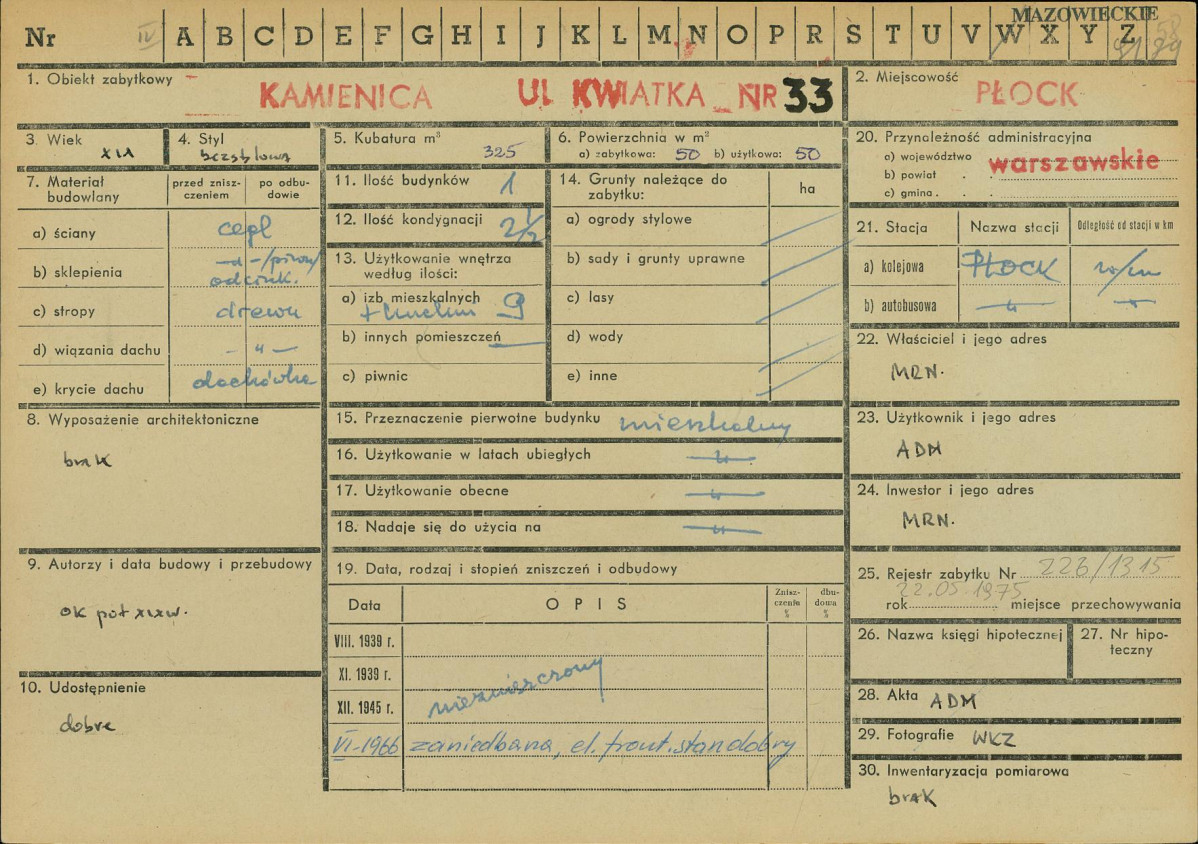 Nr IV A B C D E F G H I J K L M N O P R S T U V W X Y Z
MAZOWIECKIE
1. Obiekt zabytkowy
KAMIENICA UL KWIATKA NR 33
2. Miejscowość
PŁOCK
3. Wiek
XIX
4. Styl
bezstylowa
5. Kubatura m³
325
6. Powierzchnia w m²
a) zabytkowa: 50 b) użytkowa: 50
7. Materiał budowlany
przed zniszczeniem
po odbudowie
a) ściany cegł
b) sklepienia —„—/piwn/
odcink.
c) stropy drewn
d) wiązania dachu —„—
e) krycie dachu dachówka
8. Wyposażenie architektoniczne
brak
9. Autorzy i data budowy i przebudowy
ok poł XIXw.
10. Udostępnienie
dobre
11. Ilość budynków 1
12. Ilość kondygnacji 2½
13. Użytkowanie wnętrza
według ilości:
a) izb mieszkalnych 9
+ kuchni
b) innych pomieszczeń —
c) piwnic
14. Grunty należące do
zabytku:
ha
a) ogrody stylowe
b) sady i grunty uprawne
c) lasy
d) wody
e) inne
15. Przeznaczenie pierwotne budynku mieszkalny
16. Użytkowanie w latach ubiegłych —„—
17. Użytkowanie obecne —„—
18. Nadaje się do użycia na —„—
19. Data, rodzaj i stopień zniszczeń i odbudowy
Data
OPIS
Zniszczenie %
dbudowa %
VIII. 1939 r.
XI. 1939 r.
XII. 1945 r.
niezniszczony
VI-1966 zaniedbana, el. front. stan dobry
20. Przynależność administracyjna
a) województwo warszawskie
b) powiat . .
c) gmina . .
21. Stacja
Nazwa stacji
Odległość od stacji w km
a) kolejowa PŁOCK w/m
b) autobusowa —„— —„—
22. Właściciel i jego adres
MRN.
23. Użytkownik i jego adres
ADM
24. Inwestor i jego adres
MRN.
25. Rejestr zabytku Nr 226/1315
22.05.1975
rok miejsce przechowywania
26. Nazwa księgi hipotecznej
27. Nr hipoteczny
28. Akta ADM
29. Fotografie WKZ
30. Inwentaryzacja pomiarowa
brak